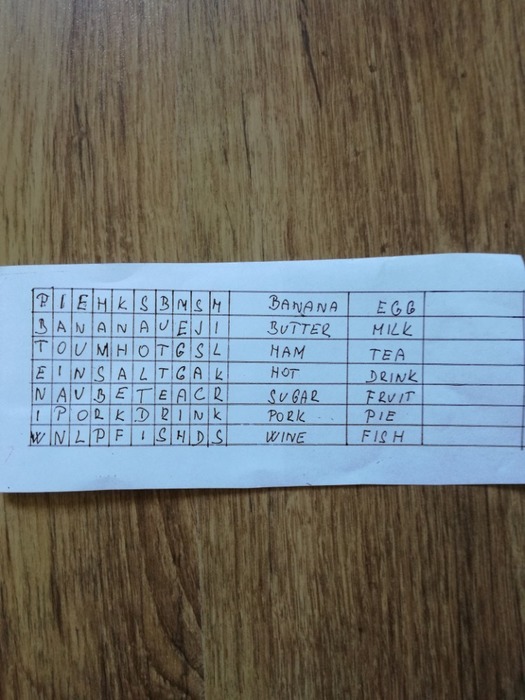 P I E H K S B M S M BANANA EGG
B A N A N A U E J I BUTTER MILK
T O U M H O T G S L HAM TEA
E I N S A L T G A K HOT DRINK
N A U B E T E A C R SUGAR FRUIT
I P O R K D R I N K PORK PIE
W N L P F I S H D S WINE FISH